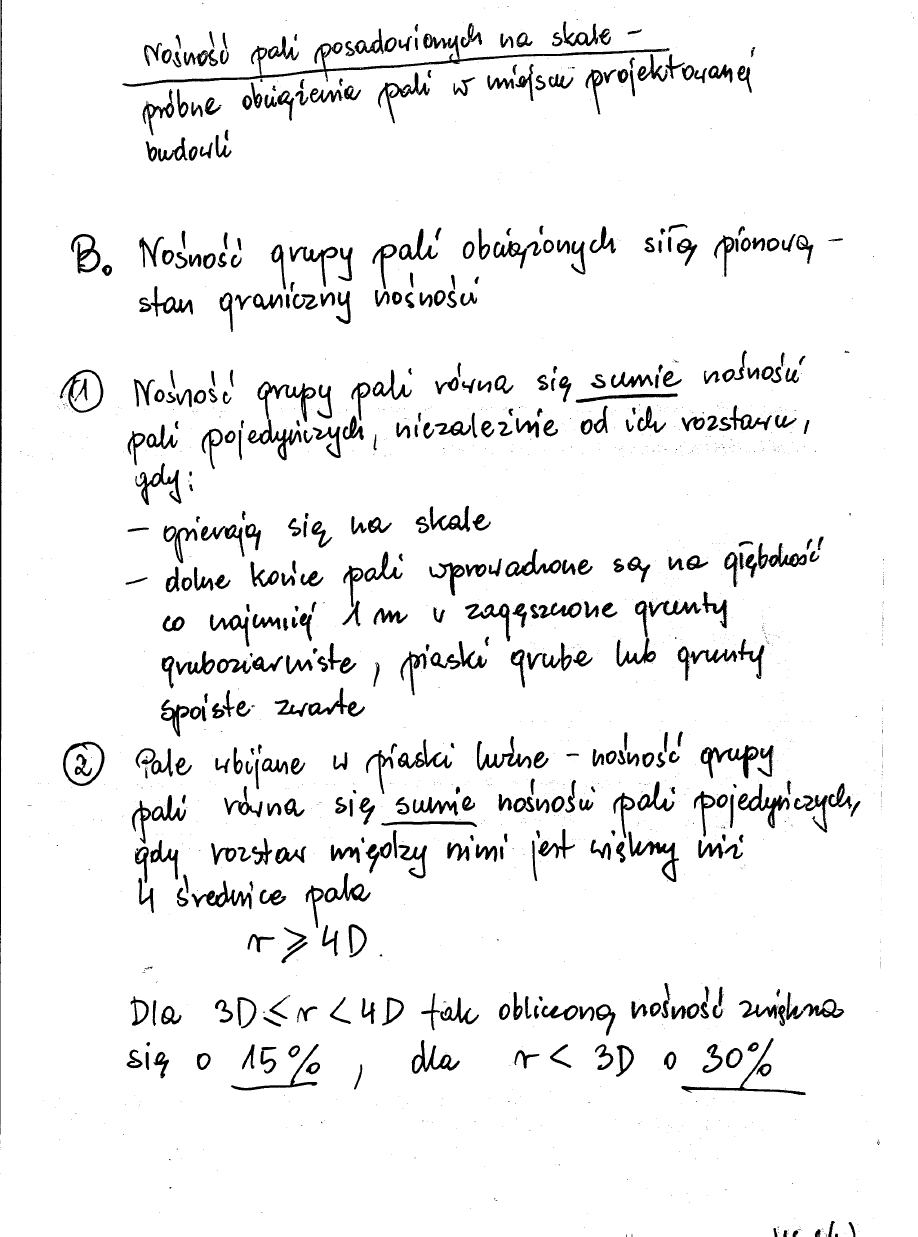 Nośność pali posadowionych na skale –
próbne obciążenia pali w miejscu projektowanej
budowli
B. Nośność grupy pali obciążonych siłą pionową –
stan graniczny nośności
① Nośność grupy pali równa się sumie nośności
pali pojedyńczych, niezależnie od ich rozstawu,
gdy:
– opierają się na skale
– dolne końce pali wprowadzone są na głębokość
co najmniej 1 m w zagęszczone grunty
gruboziarniste, piaski grube lub grunty
spoiste zwarte
② Pale wbijane w piaski luźne – nośność grupy
pali równa się sumie nośności pali pojedyńczych,
gdy rozstaw między nimi jest większy niż
4 średnice pala
r ⩾ 4D.
Dla 3D ⩽ r < 4D tak obliczoną nośność zwiększa
się o 15%, dla r < 3D o 30%